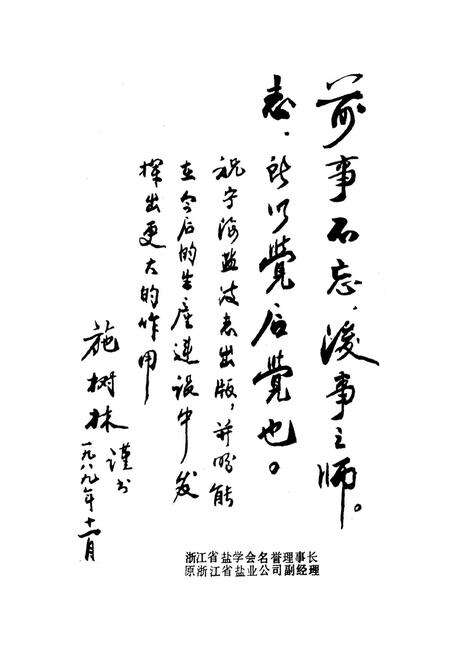 前事不忘,後事之师。
志,所以覺后覺也。
祝宁海盐政志出版,并盼能
在今后的生產建设中发
挥出更大的作用
施树林 谨书
一九八九年十一月
浙江省盐学会名誉理事长
原浙江省盐业公司副经理